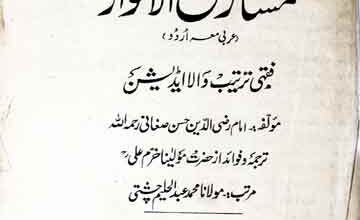 مشارق الانوار
(عربی معہ اردو)
فقہی ترتیب والا ایڈیشن
مولفہ:۔ امام رضی الدین حسن صغانی رحمہ اللہ
ترجمہ و فوائد از حضرت مولینا خرم علیؒ
مرتبہ:۔ مولانا محمد عبد الحلیم چشتی